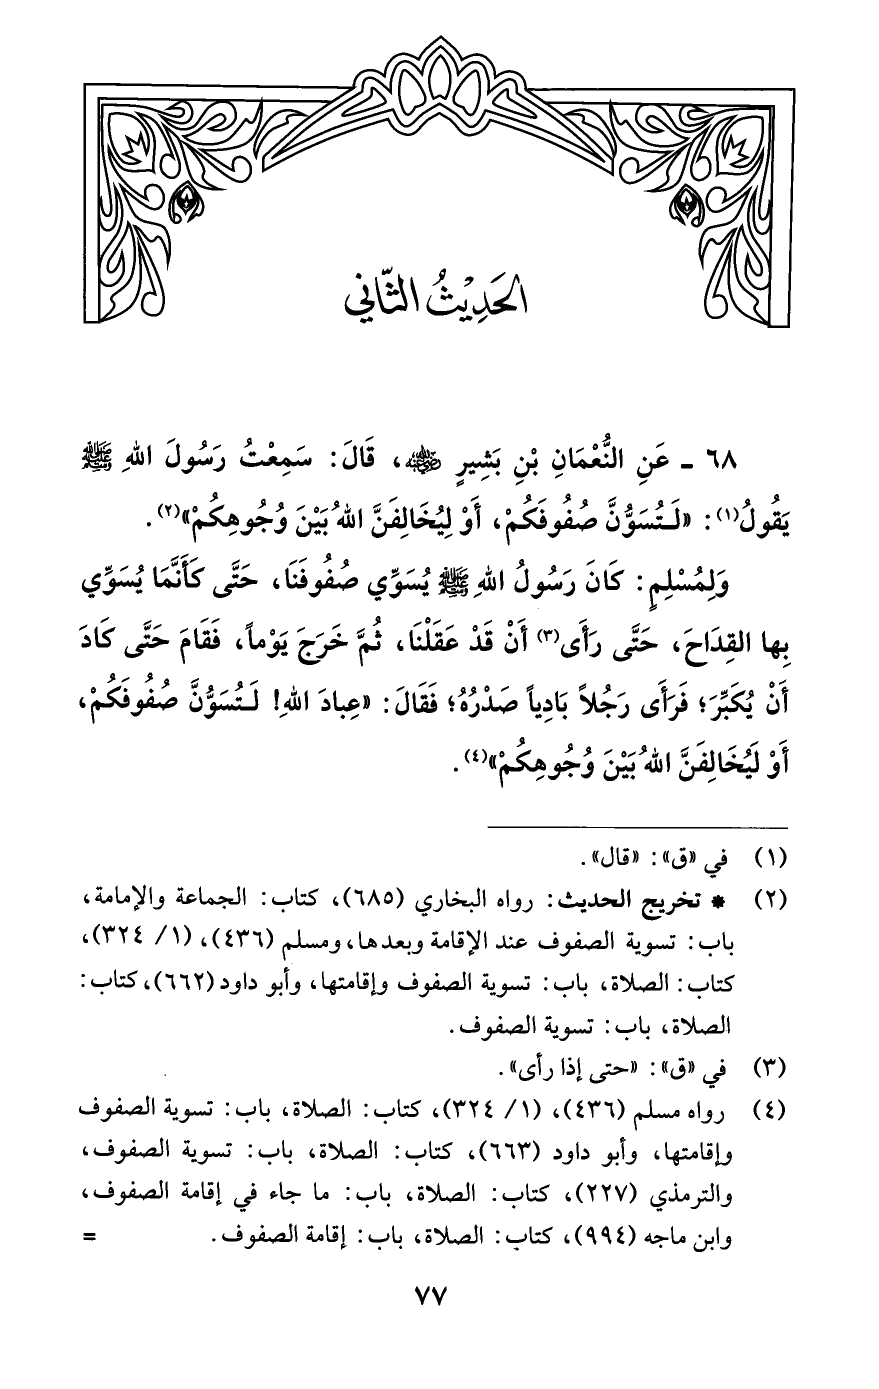 الحَدِيْثُ الثَّاني
٦٨ - عَنِ النُّعْمَانِ بْنِ بَشِيرٍ رضي الله عنه، قَالَ: سَمِعْتُ رَسُولَ اللهِ ﷺ
يَقُولُ(١): «لَتُسَوُّنَّ صُفُوفَكُمْ، أَوْ لِيُخَالِفَنَّ اللهُ بَيْنَ وُجُوهِكُمْ»(٢).
وَلِمُسْلِمٍ: كَانَ رَسُولُ اللهِ ﷺ يُسَوِّي صُفُوفَنَا، حَتَّى كَأَنَّمَا يُسَوِّي
بِها القِدَاحَ، حَتَّى رَأَى(٣) أَنْ قَدْ عَقَلْنَا، ثُمَّ خَرَجَ يَوْماً، فَقَامَ حَتَّى كَادَ
أَنْ يُكَبِّرَ؛ فَرَأَى رَجُلاً بَادِياً صَدْرُهُ؛ فَقَالَ: «عِبادَ اللهِ! لَتُسَوُّنَّ صُفُوفَكُمْ،
أَوْ لَيُخَالِفَنَّ اللهُ بَيْنَ وُجُوهِكُمْ»(٤).
(١) في «ق»: «قال».
(٢) * تخريج الحديث: رواه البخاري (٦٨٥)، كتاب: الجماعة والإمامة،
باب: تسوية الصفوف عند الإقامة وبعدها، ومسلم (٤٣٦)، (١/ ٣٢٤)،
كتاب: الصلاة، باب: تسوية الصفوف وإقامتها، وأبو داود (٦٦٢)، كتاب:
الصلاة، باب: تسوية الصفوف.
(٣) في «ق»: «حتى إذا رأى».
(٤) رواه مسلم (٤٣٦)، (١/ ٣٢٤)، كتاب: الصلاة، باب: تسوية الصفوف
وإقامتها، وأبو داود (٦٦٣)، كتاب: الصلاة، باب: تسوية الصفوف،
والترمذي (٢٢٧)، كتاب: الصلاة، باب: ما جاء في إقامة الصفوف،
وابن ماجه (٩٩٤)، كتاب: الصلاة، باب: إقامة الصفوف. =
٧٧